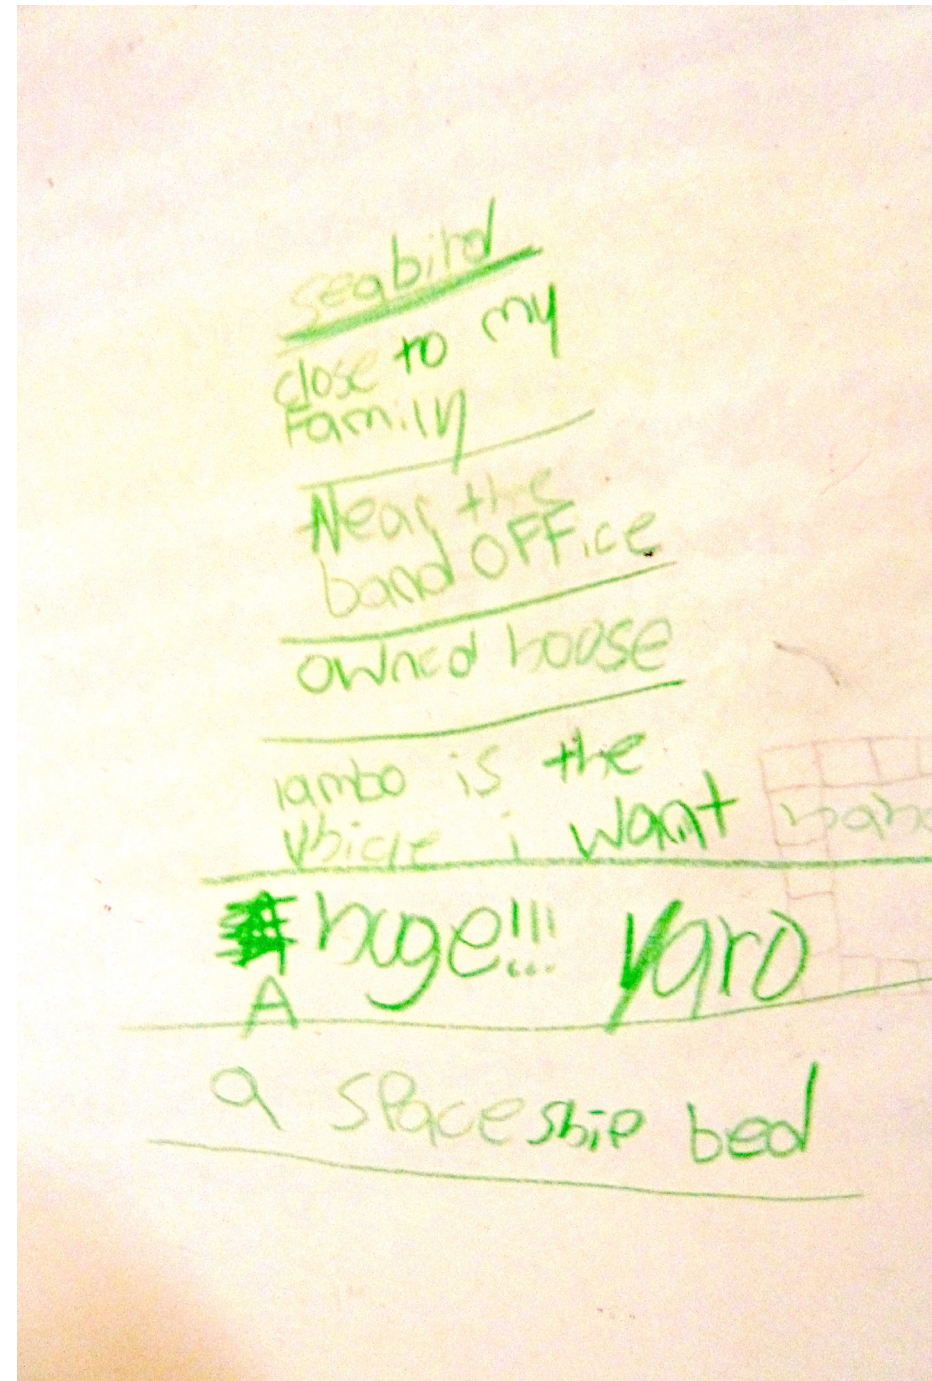 seabird
close to my
Family
Near the
band OFFice
owned house
lambo is the
vhicle i want
huge!!! yard
A
a spaceship bed